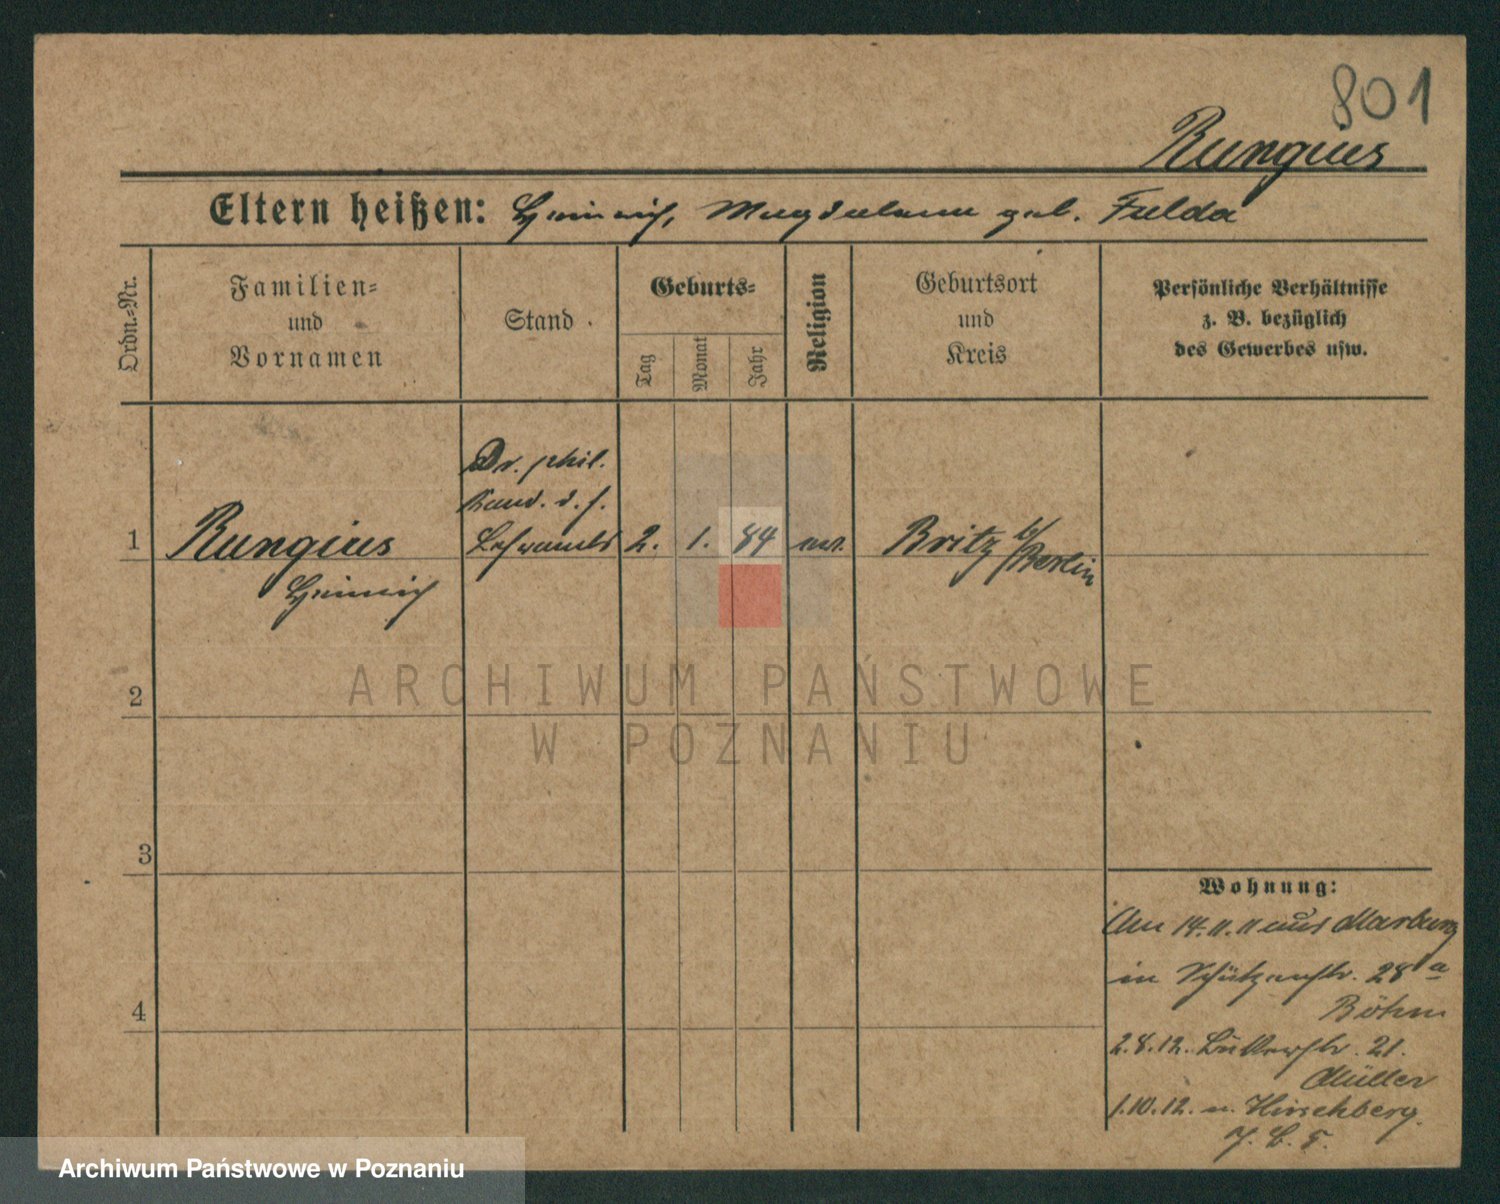 801
Rungius
Eltern heißen: Heinrich, Magdalena geb. Fulda
Ordn.-Nr.
Familien-
und
Vornamen
Stand
Geburts-
Tag
Monat
Jahr
Religion
Geburtsort
und
Kreis
Persönliche Verhältnisse
z. B. bezüglich
des Gewerbes usw.
Dr. phil.
Kand. d. h.
1 Rungius Lehramts 2. 1. 84 ev. Britz b/
Berlin
Heinrich
2
3
4
Wohnung:
Am 14.11.11 aus Marburg
in Schützenstr. 28a
Böhm
2.8.12. Str. 21.
Müller
1.10.12. n. Hirschberg
ARCHIWUM PAŃSTWOWE
W POZNANIU
Archiwum Państwowe w Poznaniu